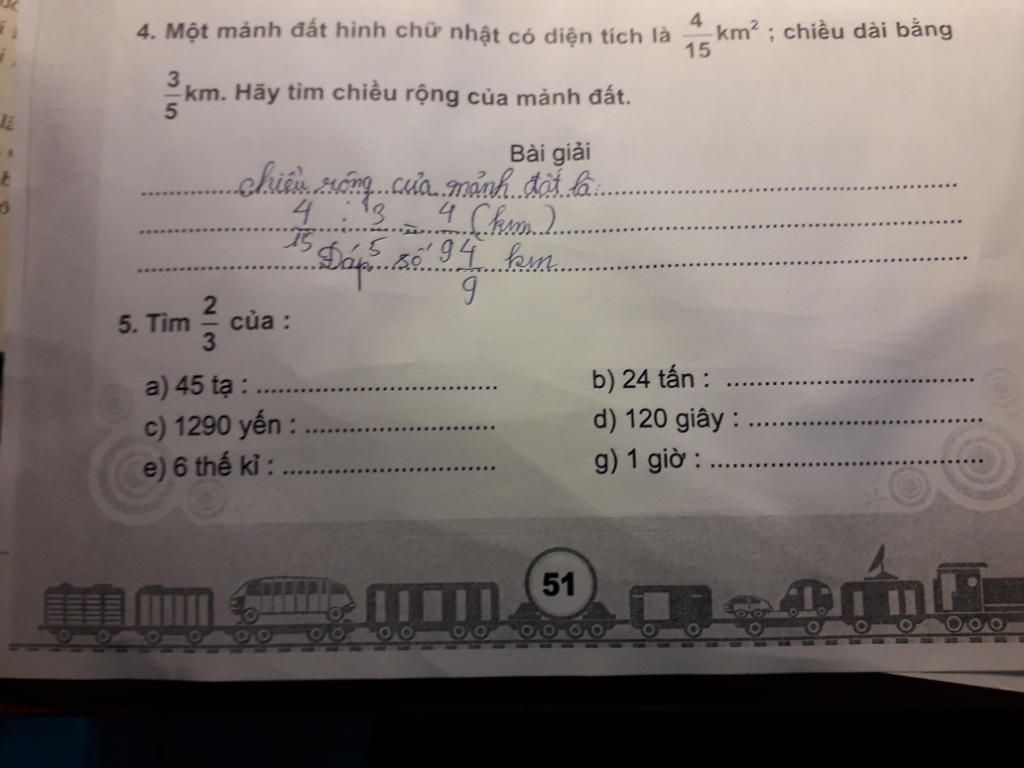 4. Một mảnh đất hình chữ nhật có diện tích là 4/15 km² ; chiều dài bằng
3/5 km. Hãy tìm chiều rộng của mảnh đất.
Bài giải
chiều rộng của mảnh đất là:
4/15 : 3/5 = 4/9 (km)
Đáp số 4/9 km
5. Tìm 2/3 của :
a) 45 tạ : ................................
b) 24 tấn : ................................
c) 1290 yến : .........................
d) 120 giây : ..............................
e) 6 thế kỉ : ............................
g) 1 giờ : ...................................
51